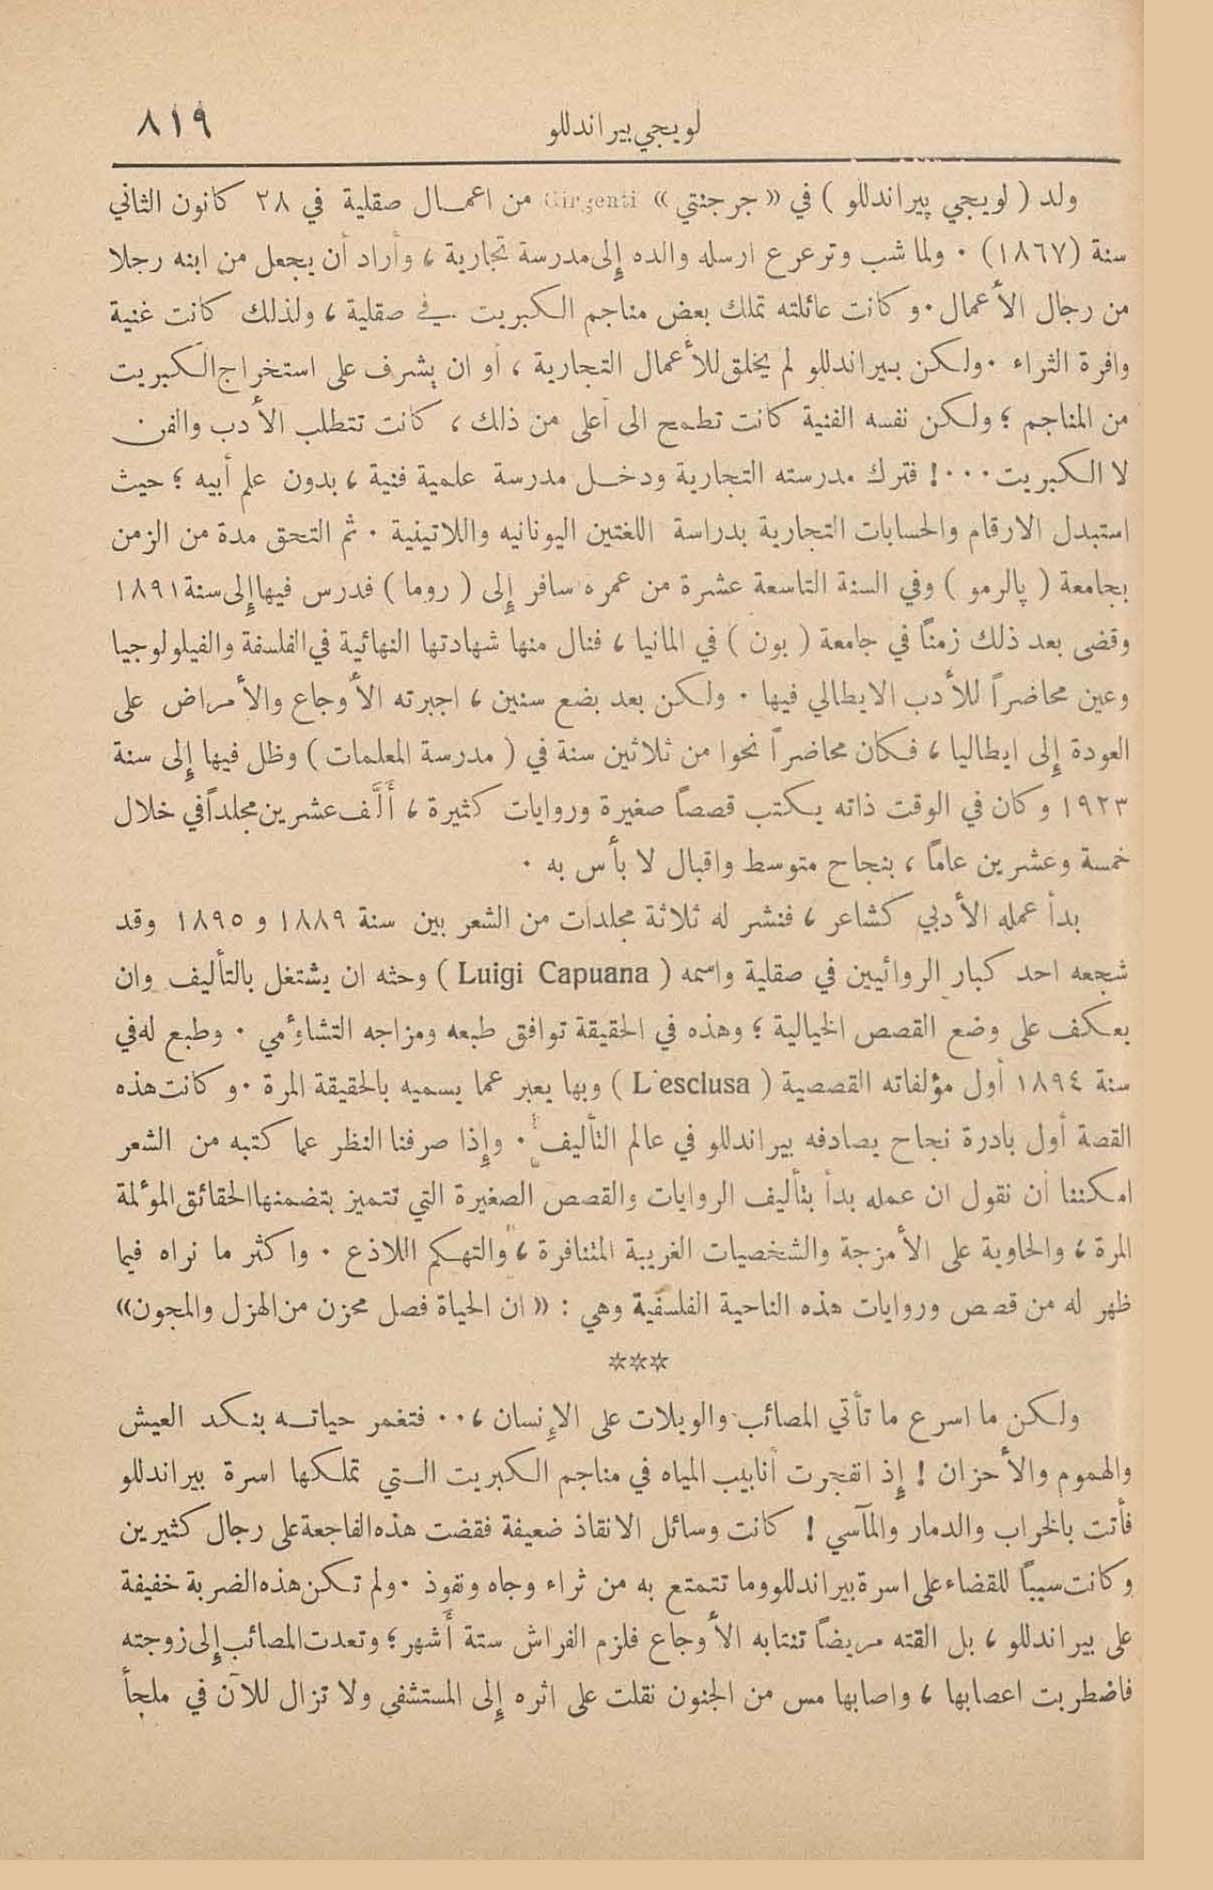 لويجي بيراندللو
٨١٩
ولد ( لويجي پيراندللو ) في «جرجنتي» Girgenti من اعمـال صقلية في ٢٨ كانون الثاني
سنة (١٨٦٧) . ولما شب وترعرع ارسله والده إلى مدرسة تجارية ، وأراد أن يجعل من ابنه رجلا
من رجال الأعمال . وكانت عائلته تملك بعض مناجم الكبريت في صقلية ، ولذلك كانت غنية
وافرة الثراء . ولكن بيراندللو لم يخلق للأعمال التجارية ، أو ان يشرف على استخراج الكبريت
من المناجم ؛ ولكن نفسه الفنية كانت تطمح الى أعلى من ذلك ، كانت تتطلب الأدب والفن
لا الكبريت ... ! فترك مدرسته التجارية ودخـل مدرسة علمية فنية ، بدون علم أبيه ؛ حيث
استبدل الارقام والحسابات التجارية بدراسة اللغتين اليونانيه واللاتينية . ثم التحق مدة من الزمن
بجامعة ( پالرمو ) وفي السنة التاسعة عشرة من عمره سافر إلى ( روما ) فدرس فيها إلى سنة ١٨٩١
وقضى بعد ذلك زمناً في جامعة ( بون ) في المانيا ، فنال منها شهادتها النهائية في الفلسفة والفيلولوجيا
وعين محاضراً للأدب الايطالي فيها . ولكن بعد بضع سنين ، اجبرته الأوجاع والأمراض على
العودة إلى ايطاليا ، فكان محاضراً نحوا من ثلاثين سنة في ( مدرسة المعلمات ) وظل فيها إلى سنة
١٩٢٣ وكان في الوقت ذاته يكتب قصصاً صغيرة وروايات كثيرة ، أَلَّف عشرين مجلداً في خلال
خمسة وعشرين عاماً ، بنجاح متوسط واقبال لا بأس به .
بدأ عمله الأدبي كشاعر ، فنشر له ثلاثة مجلدات من الشعر بين سنة ١٨٨٩ و ١٨٩٥ وقد
شجعه احد كبار الروائيين في صقلية واسمه ( Luigi Capuana ) وحثه ان يشتغل بالتأليف وان
يعكف على وضع القصص الخيالية ؛ وهذه في الحقيقة توافق طبعه ومزاجه التشاؤمي . وطبع له في
سنة ١٨٩٤ أول مؤلفاته القصصية ( L'esclusa ) وبها يعبر عما يسميه بالحقيقة المرة . وكانت هذه
القصة أول بادرة نجاح يصادفه بيراندللو في عالم التأليف . وإذا صرفنا النظر عما كتبه من الشعر
امكننا أن نقول ان عمله بدأ بتأليف الروايات والقصص الصغيرة التي تتميز بتضمنها الحقائق المؤلمة
المرة ، والحاوية على الأمزجة والشخصيات الغريبة المتنافرة ، والتهكم اللاذع . واكثر ما نراه فيما
ظهر له من قصص وروايات هذه الناحية الفلسفية وهي : « ان الحياة فصل محزن من الهزل والمجون»
***
ولكن ما اسرع ما تأتي المصائب والويلات على الإنسان ، .. فتغمر حياتـه بنكد العيش
والهموم والأحزان ! إذ انفجرت أنابيب المياه في مناجم الكبريت الـتي تملكها اسرة بيراندللو
فأتت بالخراب والدمار والمآسي ! كانت وسائل الانقاذ ضعيفة فقضت هذه الفاجعة على رجال كثيرين
وكانت سبباً للقضاء على اسرة بيراندللو وما تتمتع به من ثراء وجاه ونفوذ . ولم تكن هذه الضربة خفيفة
على بيراندللو ، بل القته مريضاً تنتابه الأوجاع فلزم الفراش ستة أَشهر ؛ وتعدت المصائب إلى زوجته
فاضطربت اعصابها ، واصابها مس من الجنون نقلت على اثره إلى المستشفى ولا تزال للآن في ملجأ